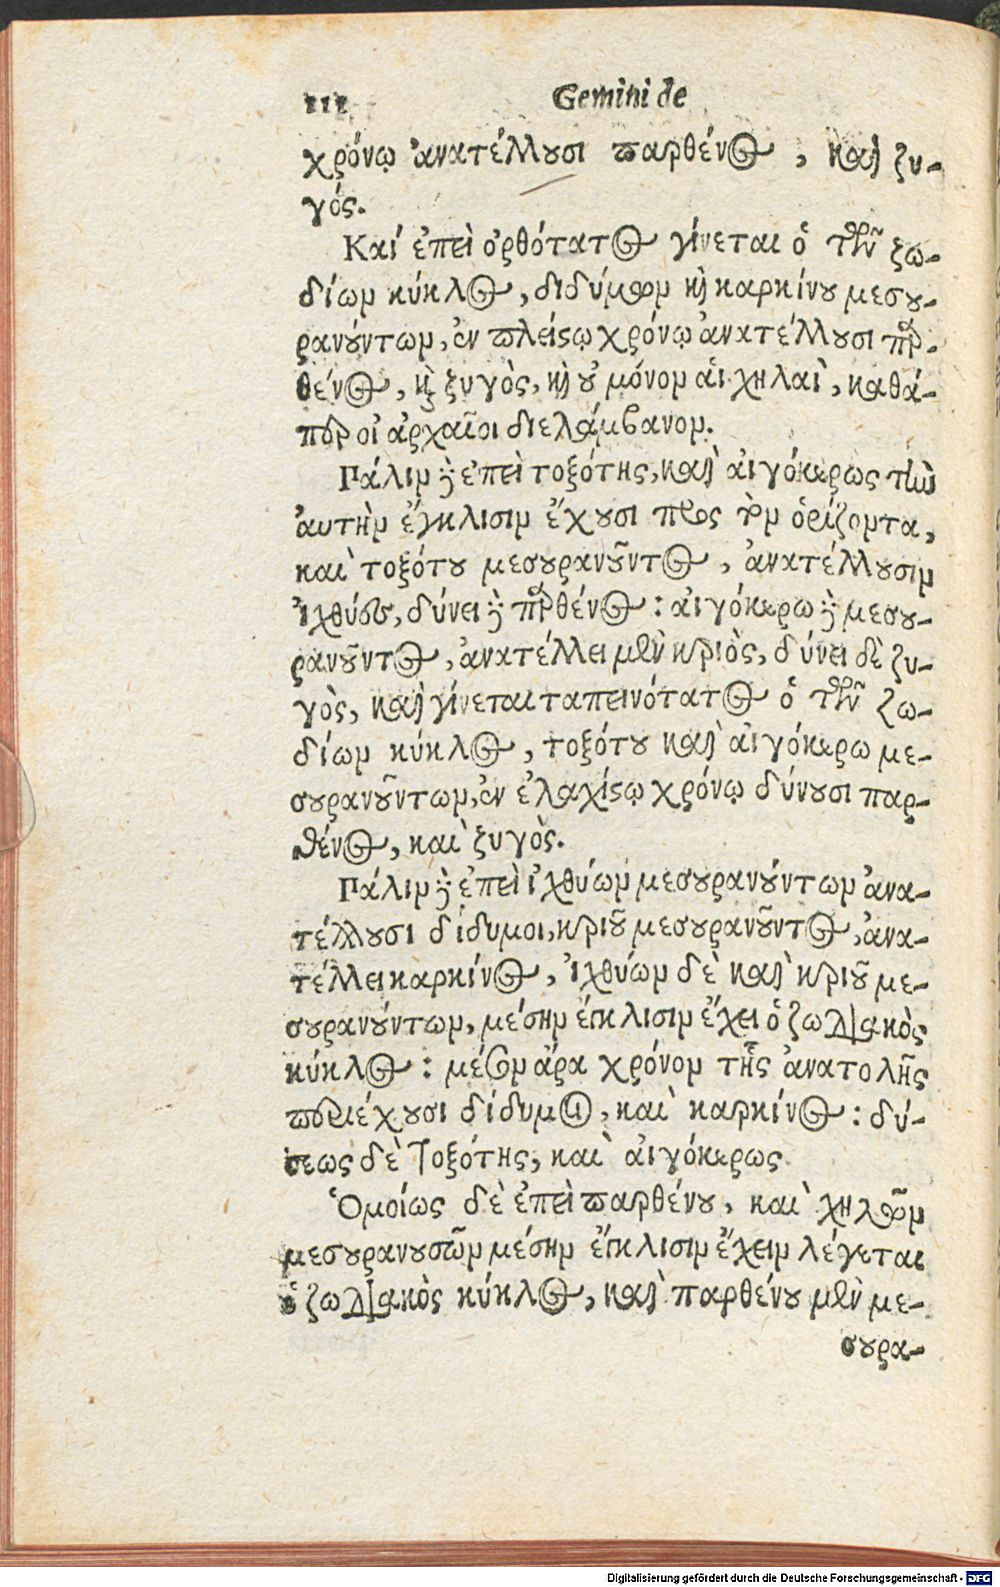 111 Gemini de
χρόνῳ ἀνατέλλουσι παρθένος, καὶ ζυ-
γός.
Καί ἐπεὶ ὀρθότατος γίνεται ὁ τῶν ζω-
δίων κύκλος, διδύμων καὶ καρκίνου μεσου-
ρανούντων, ἐν πλείστῳ χρόνῳ ἀνατέλλουσι παρ-
θένος, καὶ ξυγὸς, καὶ οὐ μόνον αἱ χηλαὶ, καθά-
περ οἱ ἀρχαῖοι διελάμβανον.
Πάλιν δὲ ἐπεὶ τοξότης, καὶ αἰγόκερως τὴν
ἀυτὴν ἔγκλισιν ἔχουσι πρὸς τὸν ὁρίζοντα,
καὶ τοξότου μεσουρανοῦντος, ἀνατέλλουσιν
ἰχθύες, δύνει δὲ παρθένος: αἰγόκερω δὲ μεσου-
ρανοῦντος, ἀνατέλλει μὲν κριὸς, δύνει δὲ ζυ-
γὸς, καὶ γίνεται ταπεινότατος ὁ τῶν ζω-
δίων κύκλος, τοξότου καὶ αἰγόκερω με-
σουρανοῦντων, ἐν ἐλαχίστῳ χρόνῳ δύνουσι παρ-
θένος, καὶ ξυγὸς.
Πάλιν δὲ ἐπεὶ ἰχθύων μεσουρανούντων ἀνα-
τέλλουσι δίδυμοι, κριοῦ μεσουρανοῦντος, ἀνα-
τέλλει καρκίνος, ἰχθύων δὲ καὶ κριοῦ με-
σουρανούντων, μέσην ἔγκλισιν ἔχει ὁ ζωδιακὸς
κύκλος: μέσον ἄρα χρόνον τῆς ἀνατολῆς
περιέχουσι δίδυμοι, καὶ καρκίνος: δύ-
σεως δὲ τοξότης, καὶ αἰγόκερως.
Ὁμοίως δὲ ἐπεὶ παρθένου, καὶ χηλῶν
μεσουρανουσῶν μέσην ἔγκλισιν ἔχειν λέγεται
ὁ ζωδιακὸς κύκλος, καὶ παρθένου μὲν με-
σουρα-
Digitalisierung gefördert durch die Deutsche Forschungsgemeinschaft - DFG